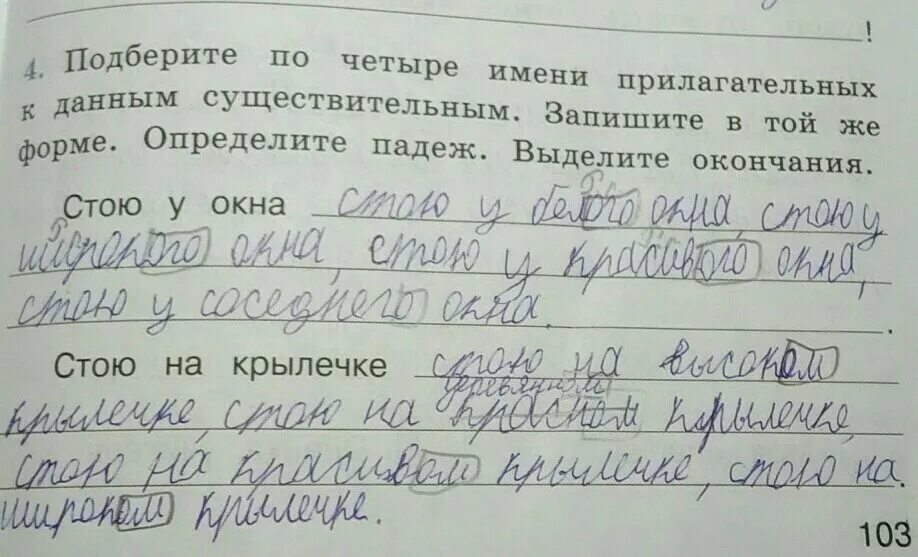 !
4. Подберите по четыре имени прилагательных
к данным существительным. Запишите в той же
форме. Определите падеж. Выделите окончания.
Стою у окна стою у белого окна, стою у
широкого окна, стою у красивого окна,
стою у соседнего окна.
Стою на крылечке стою на высоком
деревянном
крылечке, стою на красном крылечке,
стою на красивом крылечке, стою на
широком крылечке.
103